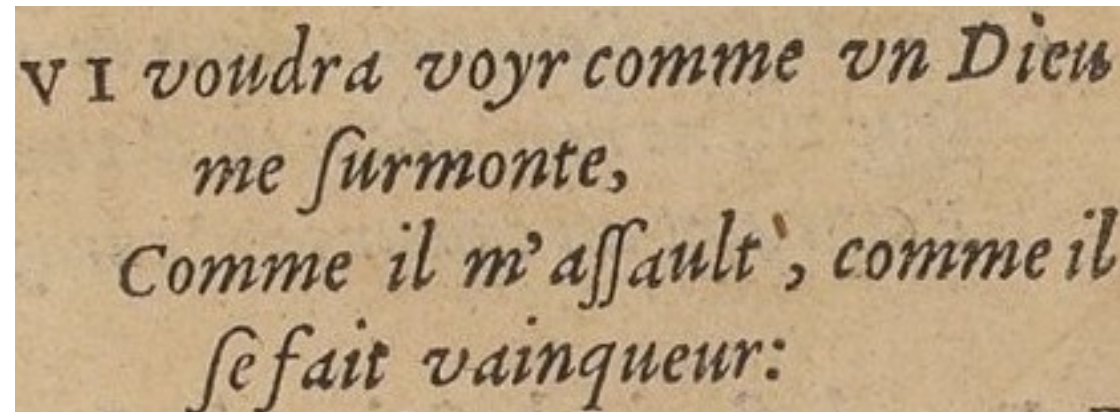 VI voudra voyr comme vn Dieu
me ſurmonte,
Comme il m'aſſault, comme il
ſe fait vainqueur: